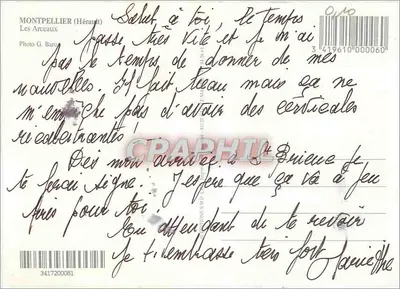 MONTPELLIER (Hérault)
Les Arceaux
Photo G. Barot
0,10
3 419610 000060
Salut à toi, le temps
passe très vite et je n'ai
pas le temps de donner de mes
nouvelles. Il fait beau mais ça ne
m'empêche pas d'avoir des cervicales
récalcitrantes!
Dès mon arrivée à St Brieuc je
te ferai signe. J'espère que ça va à peu
près pour toi
En attendant de te revoir
Je t'embrasse très fort
CPAPHIL
3417200081